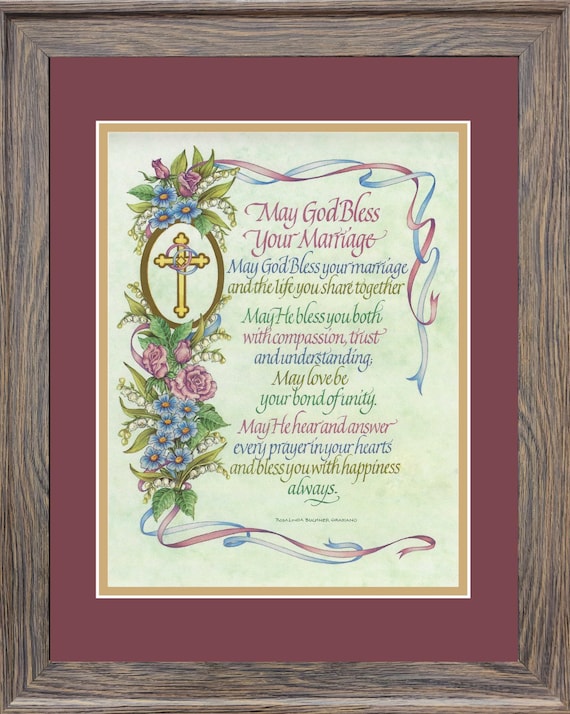 May God Bless
Your Marriage
May God Bless your marriage
and the life you share together
May He bless you both
with compassion, trust
and understanding;
May love be
your bond of unity.
May He hear and answer
every prayer in your hearts
and bless you with happiness
always.